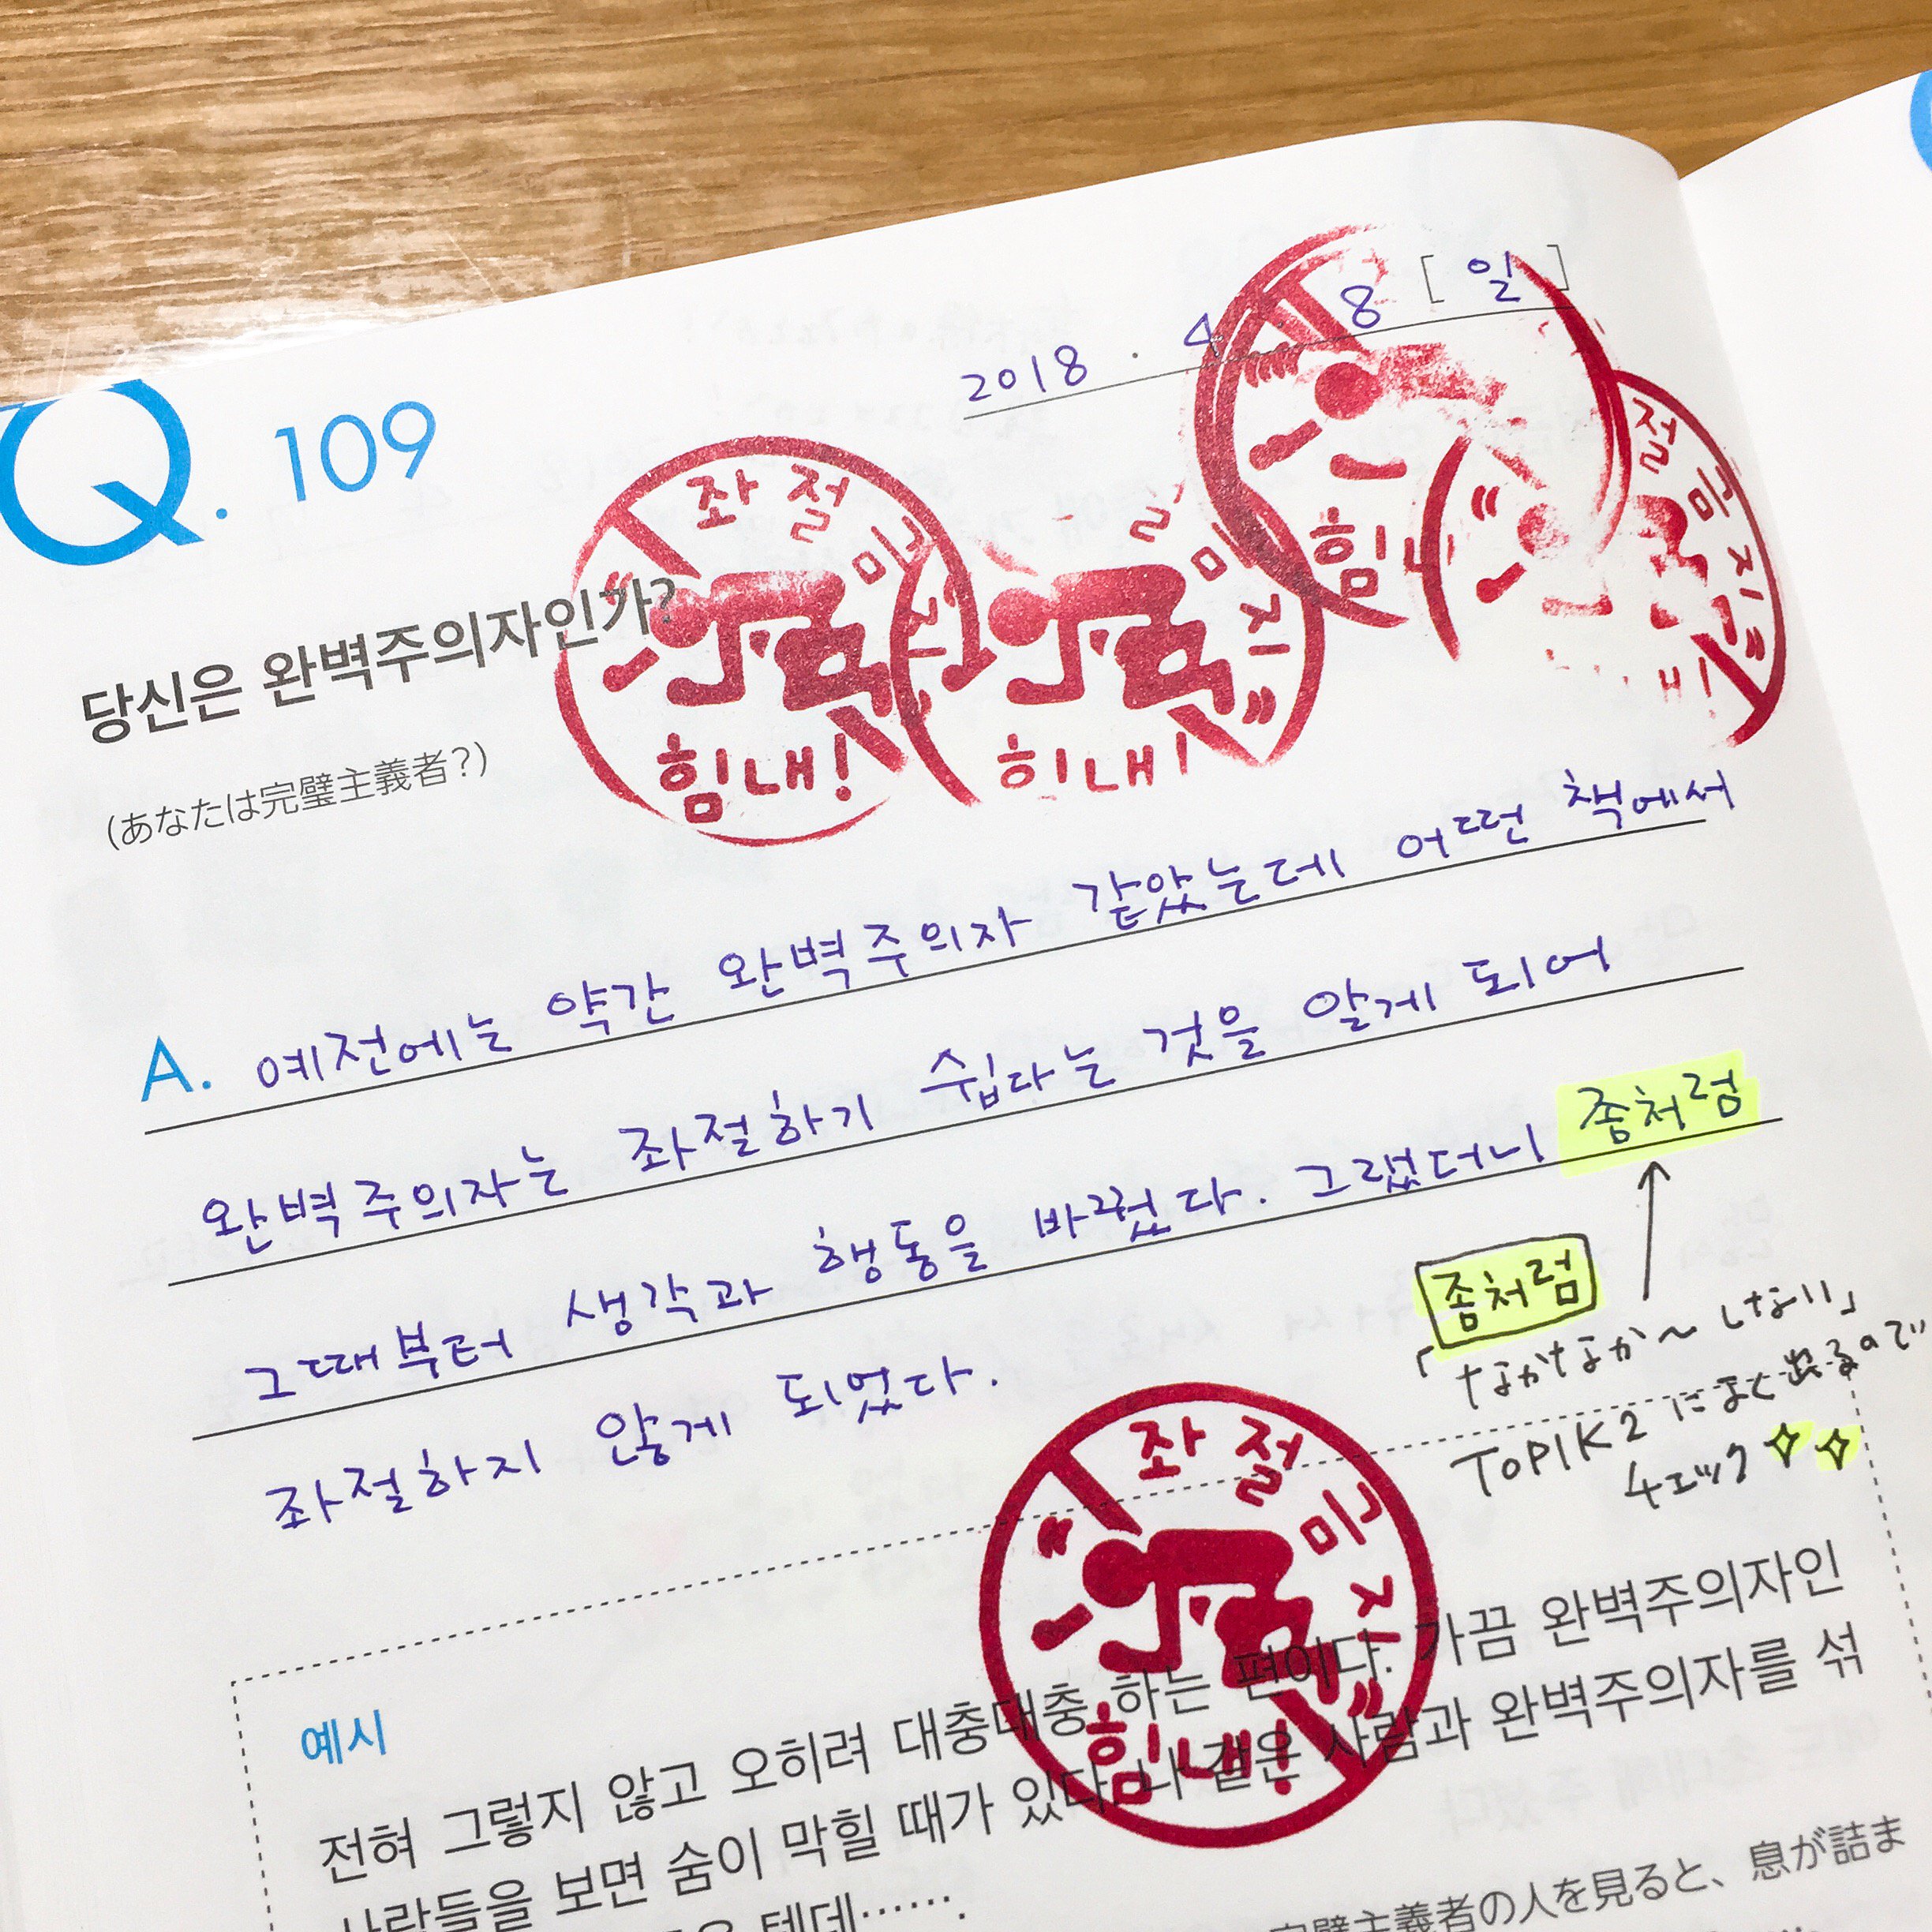 2018 . 4 . 8 [ 일 ]
Q. 109
좌절금지
힘내!
당신은 완벽주의자인가?
(あなたは完璧主義者?)
A. 예전에는 약간 완벽주의자 같았는데 어떤 책에서
완벽주의자는 좌절하기 쉽다는 것을 알게 되어
그때부터 생각과 행동을 바꿨다. 그랬더니 좀처럼
좌절하지 않게 되었다.
좀처럼
「なかなか〜しない」
TOPIK2 によく出るので
チェック
좌절금지
힘내!
예시
전혀 그렇지 않고 오히려 대충대충 하는 편이다. 가끔 완벽주의자인
사람들을 보면 숨이 막힐 때가 있다. 나 같은 사람과 완벽주의자를 섞
텐데…….
完璧主義者の人を見ると、息が詰ま